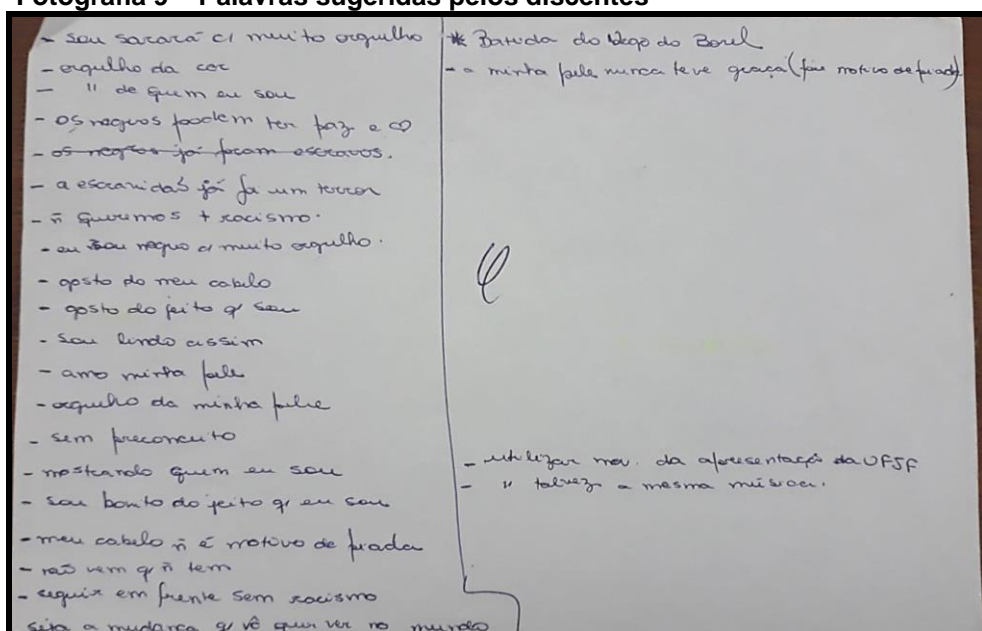 Fotografia 9 – Palavras sugeridas pelos discentes
- sou sarará c/ muito orgulho
- orgulho da cor
- " de quem eu sou
- os negros podem ter paz e
- os negros já foram escravos.
- a escravidão já foi um terror
- ñ queremos + racismo.
- eu sou negro c/ muito orgulho.
- gosto do meu cabelo
- gosto do jeito q/ sou
- sou lindo assim
- amo minha pele
- orgulho da minha pele
- sem preconceito
- mostrando quem eu sou
- sou bonito do jeito q/ eu sou
- meu cabelo ñ é motivo de piada
- não vem q/ ñ tem
- seguir em frente sem racismo
seja a mudança q/ vê quer ver no mundo
* Batida do Nego do Borel
- a minha pele nunca teve graça (foi motivo de piada)
- utilizar mov. da apresentação da UFJF
- " talvez a mesma música.